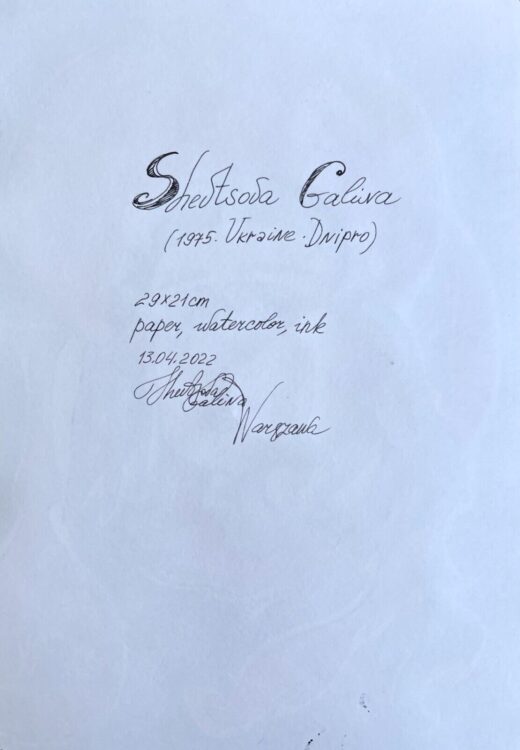 Shevtsova Galina
(1975. Ukraine. Dnipro)
29x21cm
paper, watercolor, ink
13.04.2022
Shevtsova
Galina
Warszawa